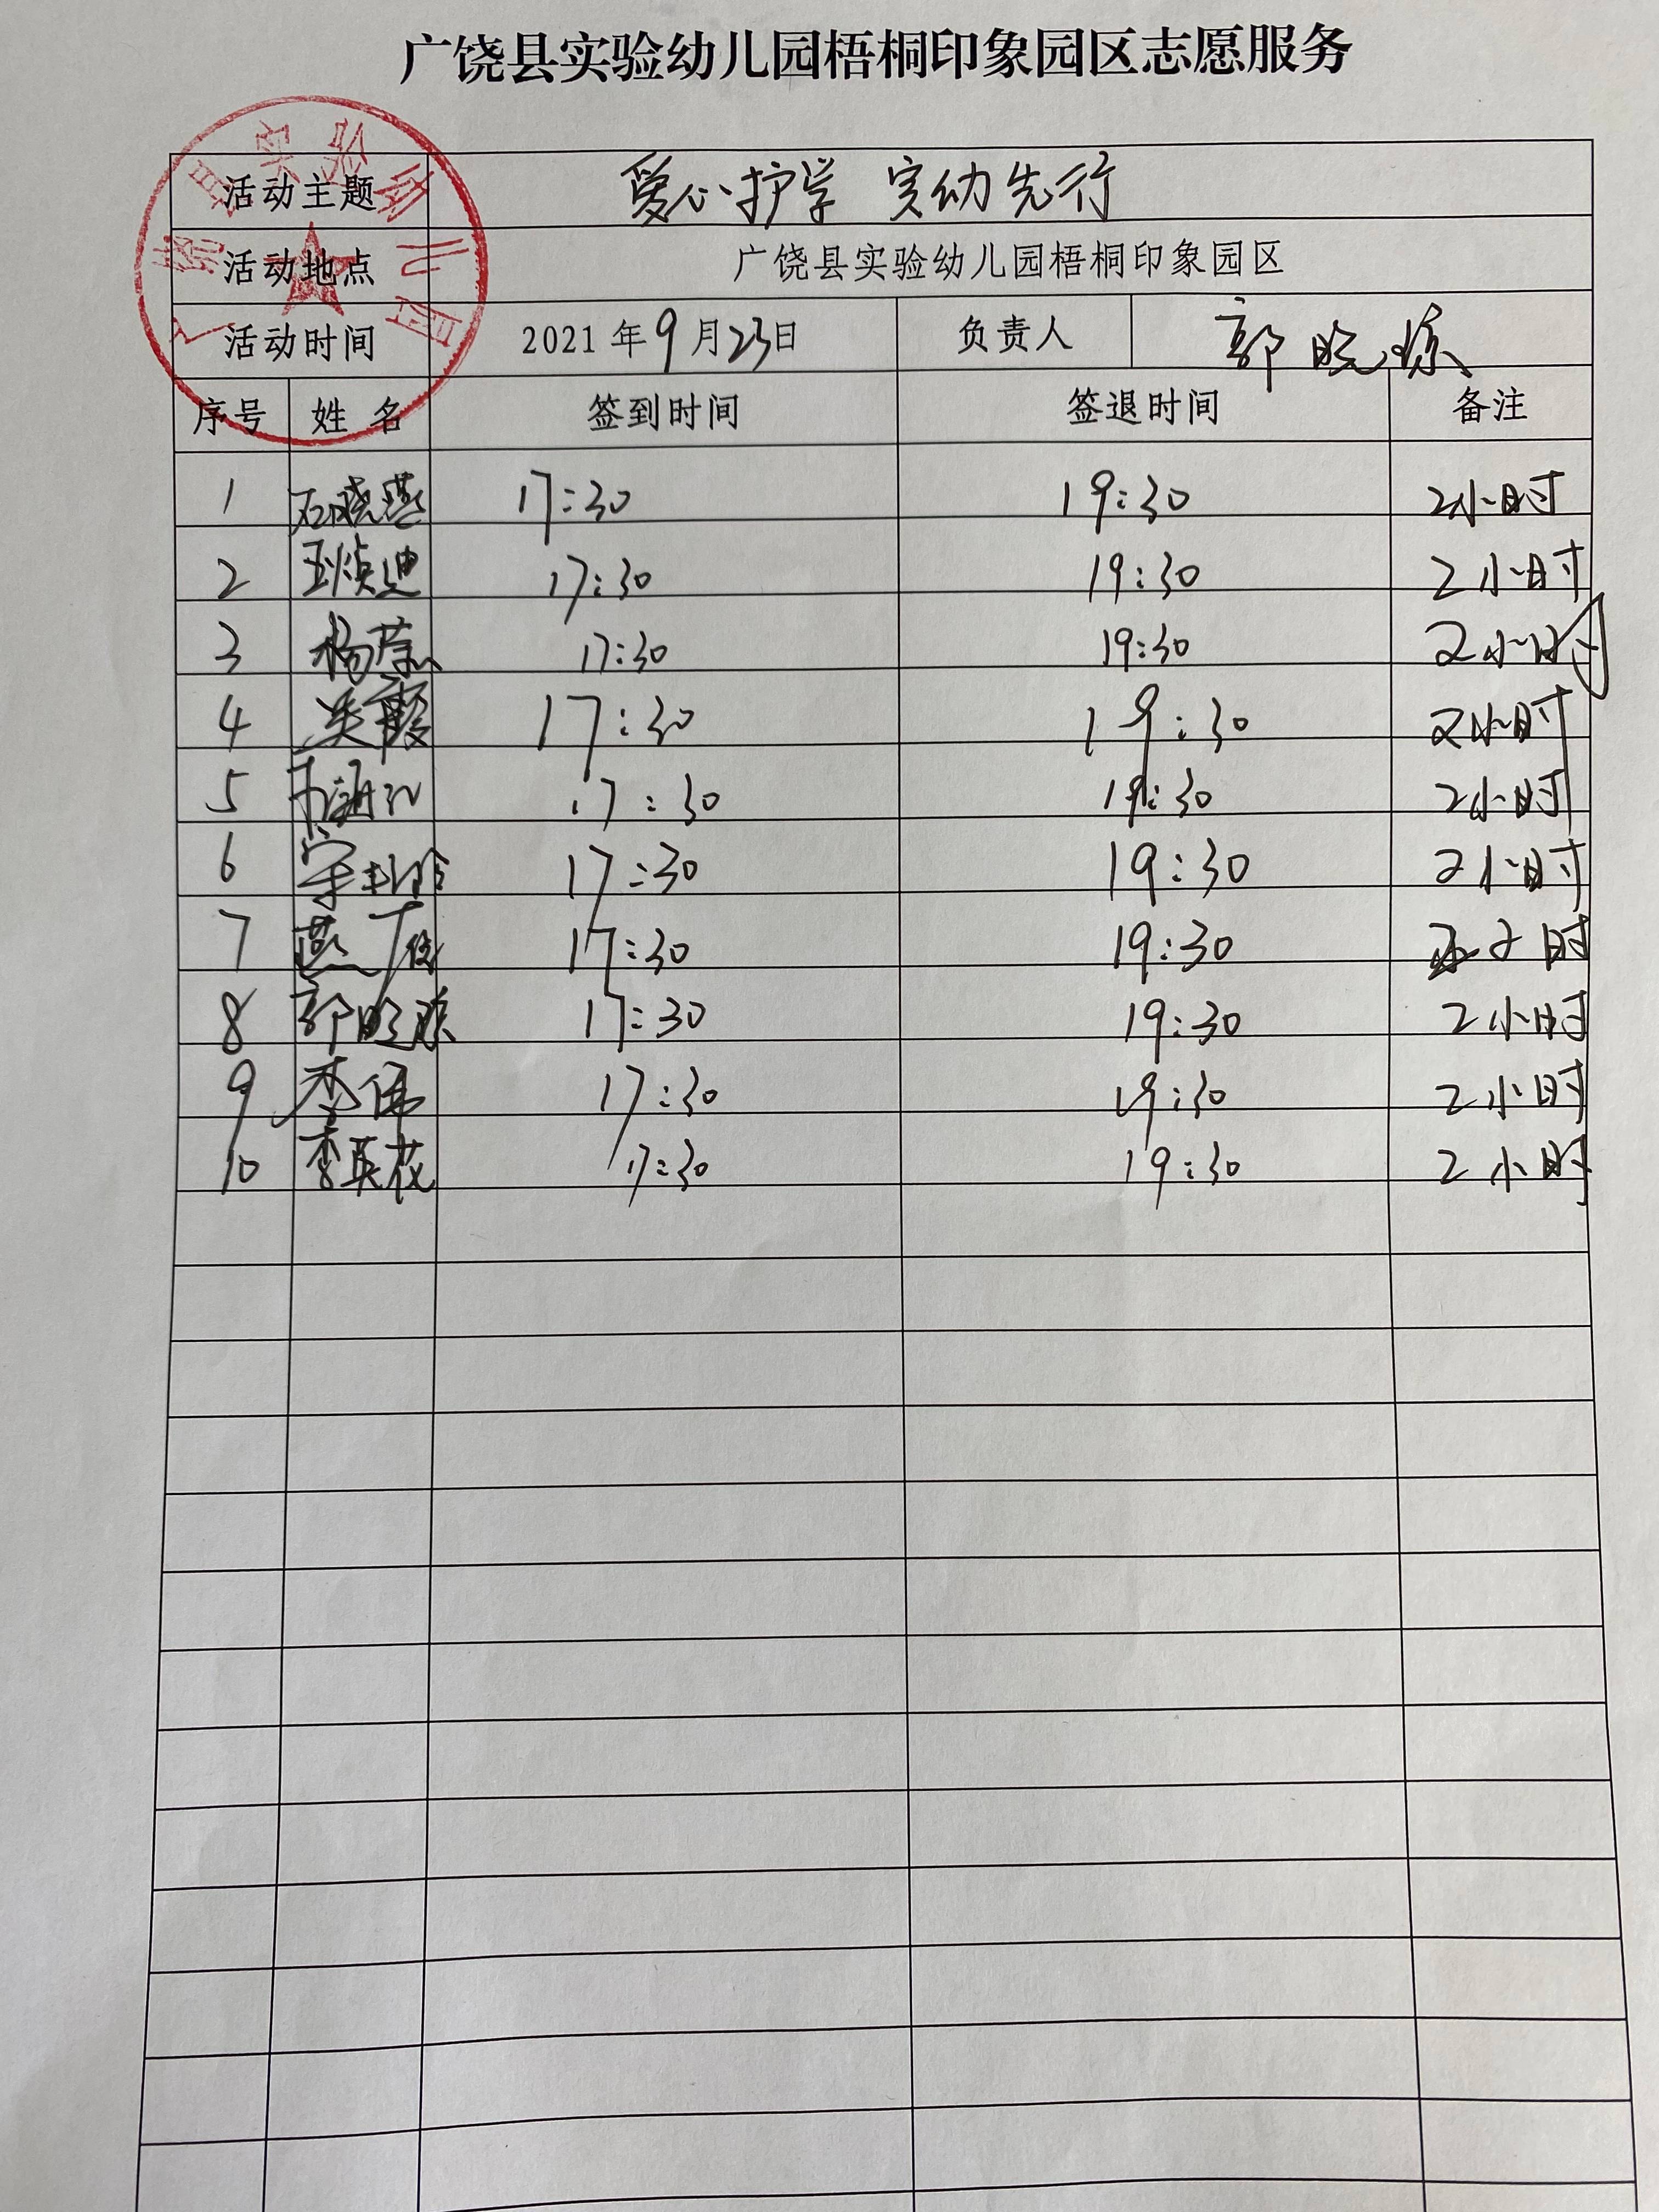 广饶县实验幼儿园梧桐印象园区志愿服务
活动主题 爱心护学 实幼先行
活动地点 广饶县实验幼儿园梧桐印象园区
活动时间 2021年9月23日 负责人 郭晓琼
序号 姓名 签到时间 签退时间 备注
1 石晓燕 17:30 19:30 2小时
2 17:30 19:30 2小时
3 杨蕊 17:30 19:30 2小时
4 吴霞 17:30 19:30 2小时
5 17:30 19:30 2小时
6 17:30 19:30 2小时
7 燕 17:30 19:30 时
8 郭晓琼 17:30 19:30 2小时
9 李伟 17:30 19:30 2小时
10 李英花 17:30 19:30 2小时
广饶县实验幼儿园